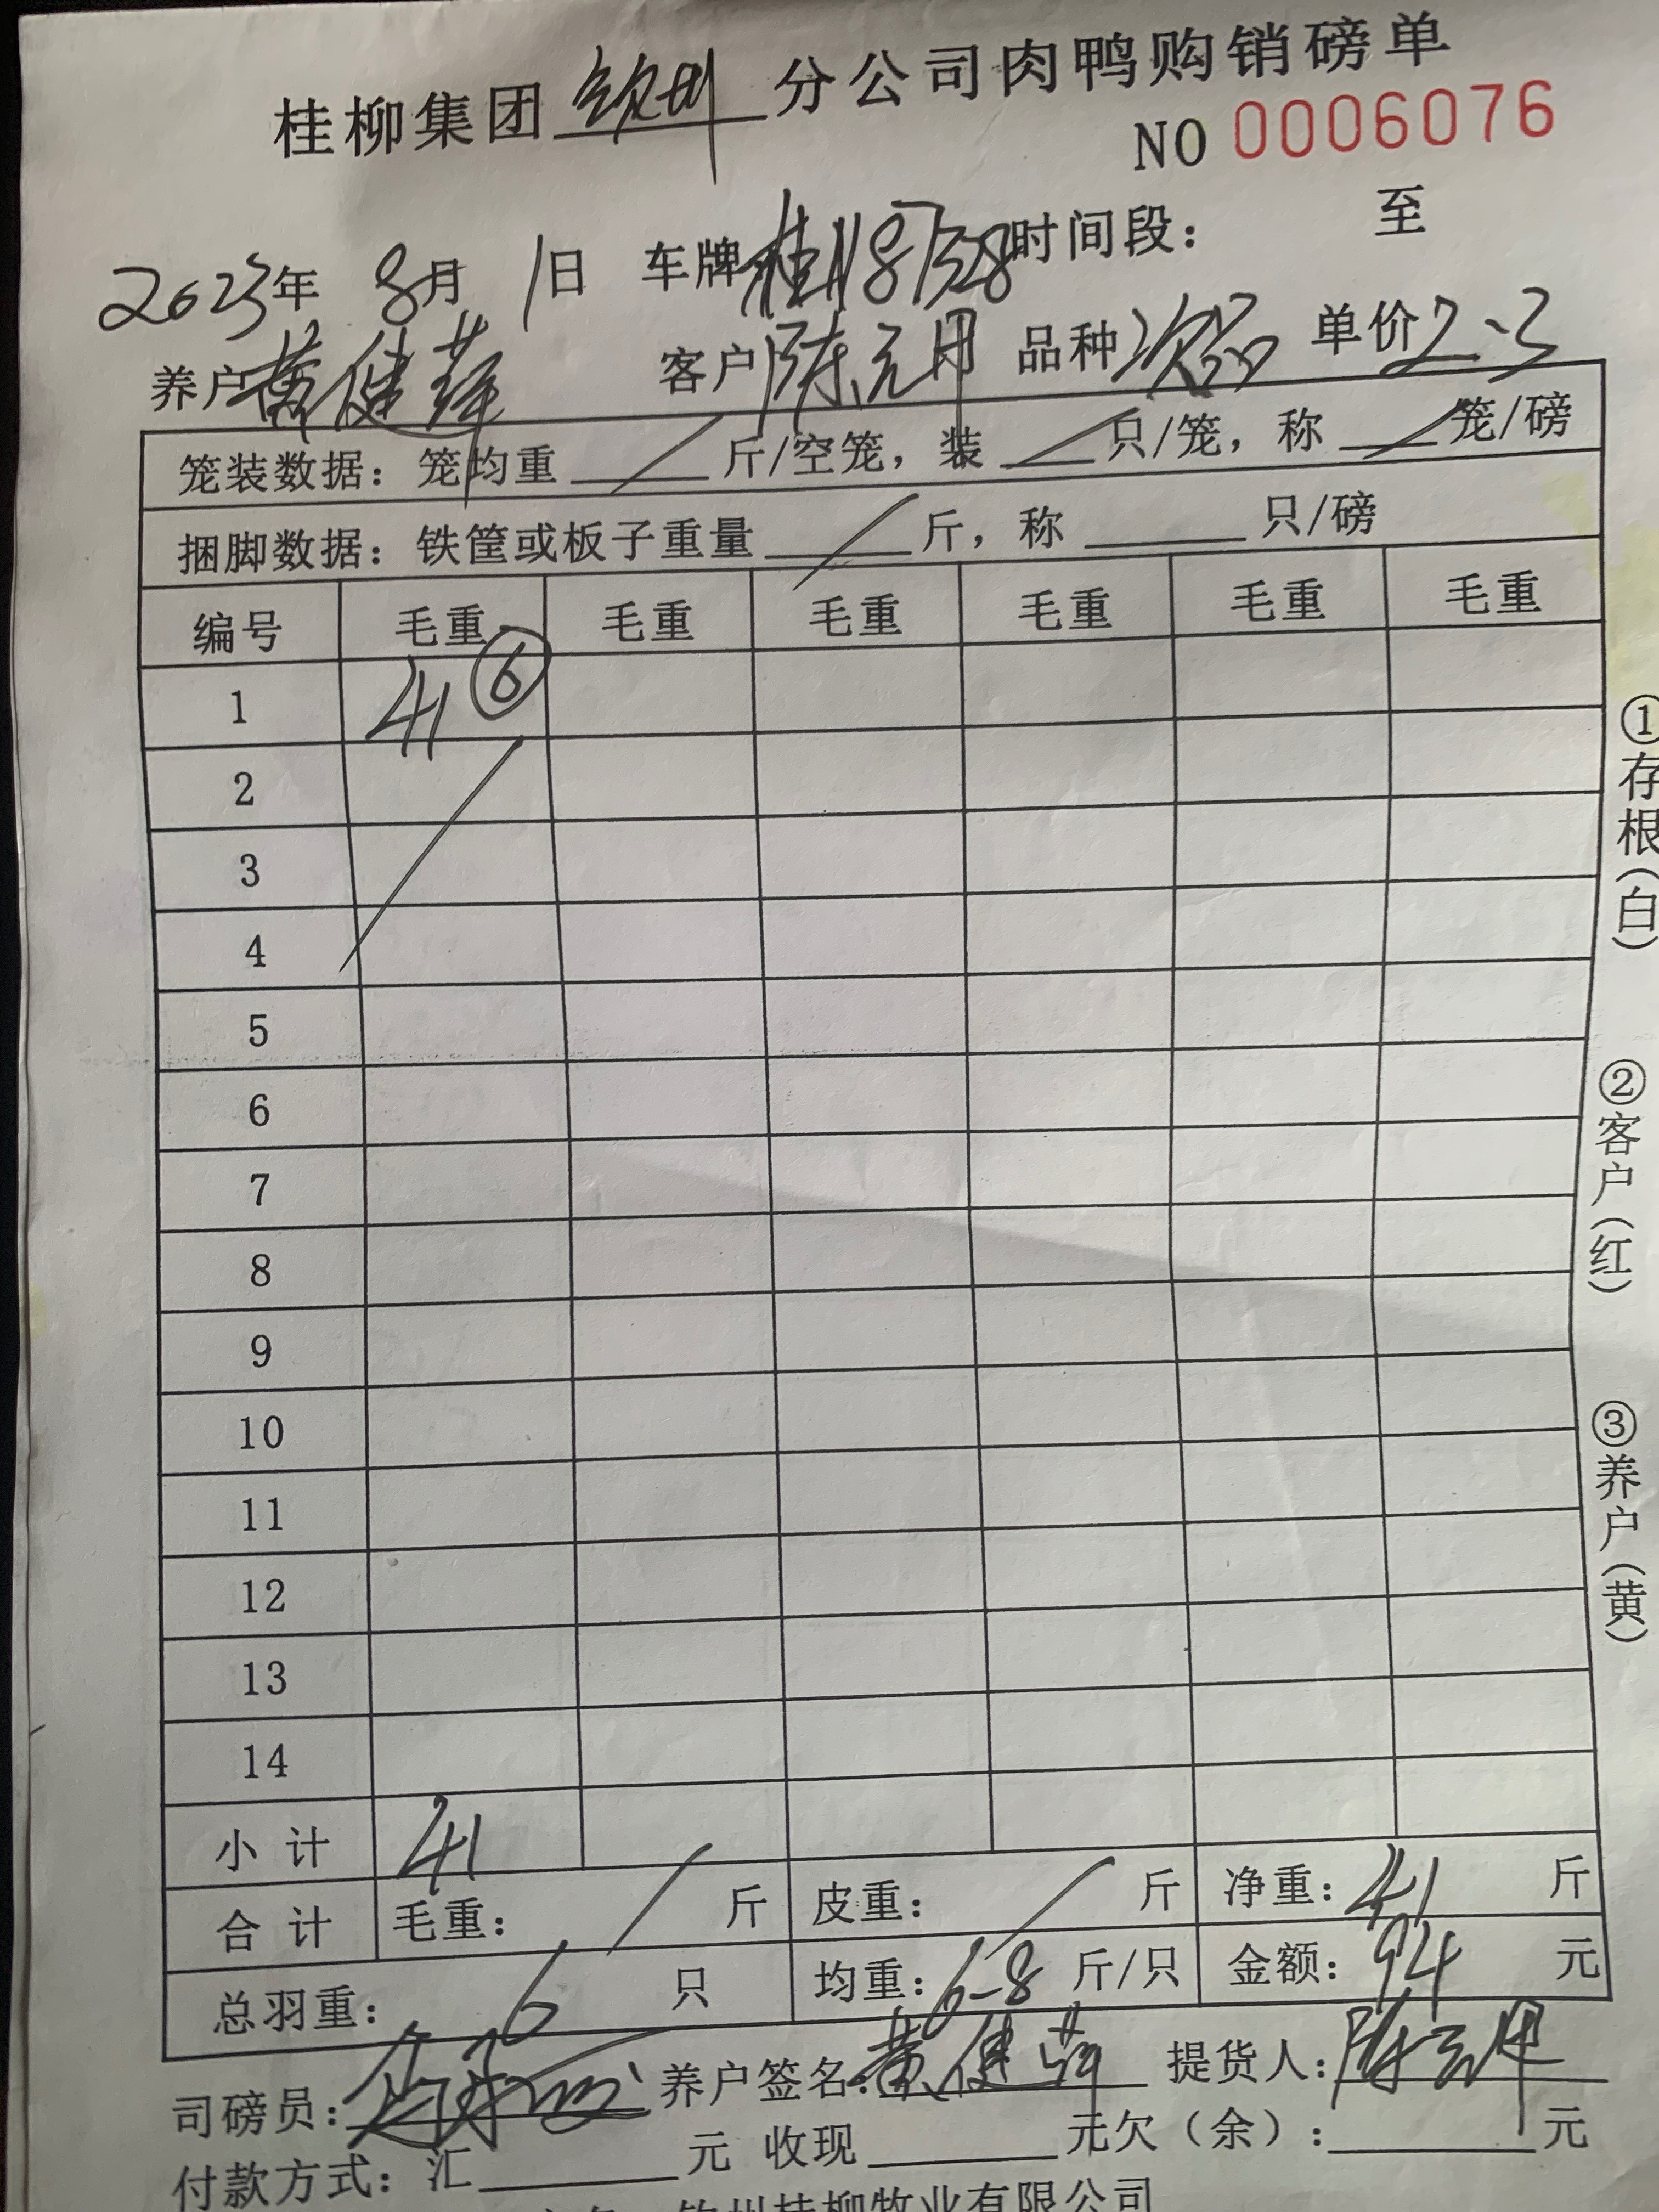 桂柳集团钦州分公司肉鸭购销磅单
NO 0006076
2023年 8月 1日 车牌桂 时间段: 至
养户黄健 客户陈元 品种次品 单价2.3
笼装数据: 笼均重 斤/空笼, 装 只/笼, 称 笼/磅
捆脚数据: 铁筐或板子重量 斤, 称 只/磅
编号 毛重 毛重 毛重 毛重 毛重 毛重
1 41 ⑥
2
3
4
5
6
7
8
9
10
11
12
13
14
小计 41
合计 毛重: 斤 皮重: 斤 净重: 41 斤
总羽重: 6 只 均重: 6-8 斤/只 金额: 94 元
司磅员: 养户签名: 黄健 提货人: 陈元
付款方式: 汇 元 收现 元欠(余): 元
钦州桂柳牧业有限公司
①存根(白)
②客户(红)
③养户(黄)